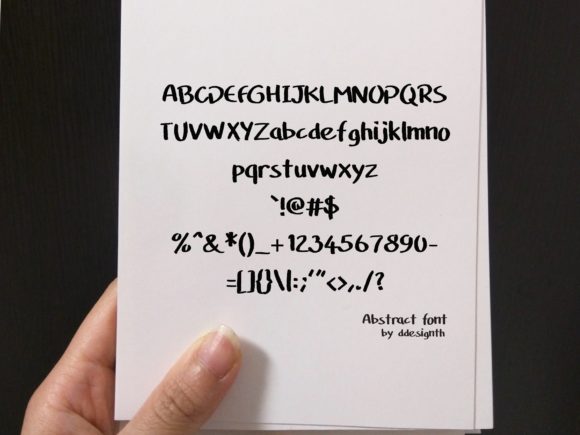 ABCDEFGHIJKLMNOPQRS
TUVWXYZabcdefghijklmno
pqrstuvwxyz
`!@#$
%^&*()_+1234567890-
=[]{}\|:;'"<>,./?
Abstract font
by ddesignth